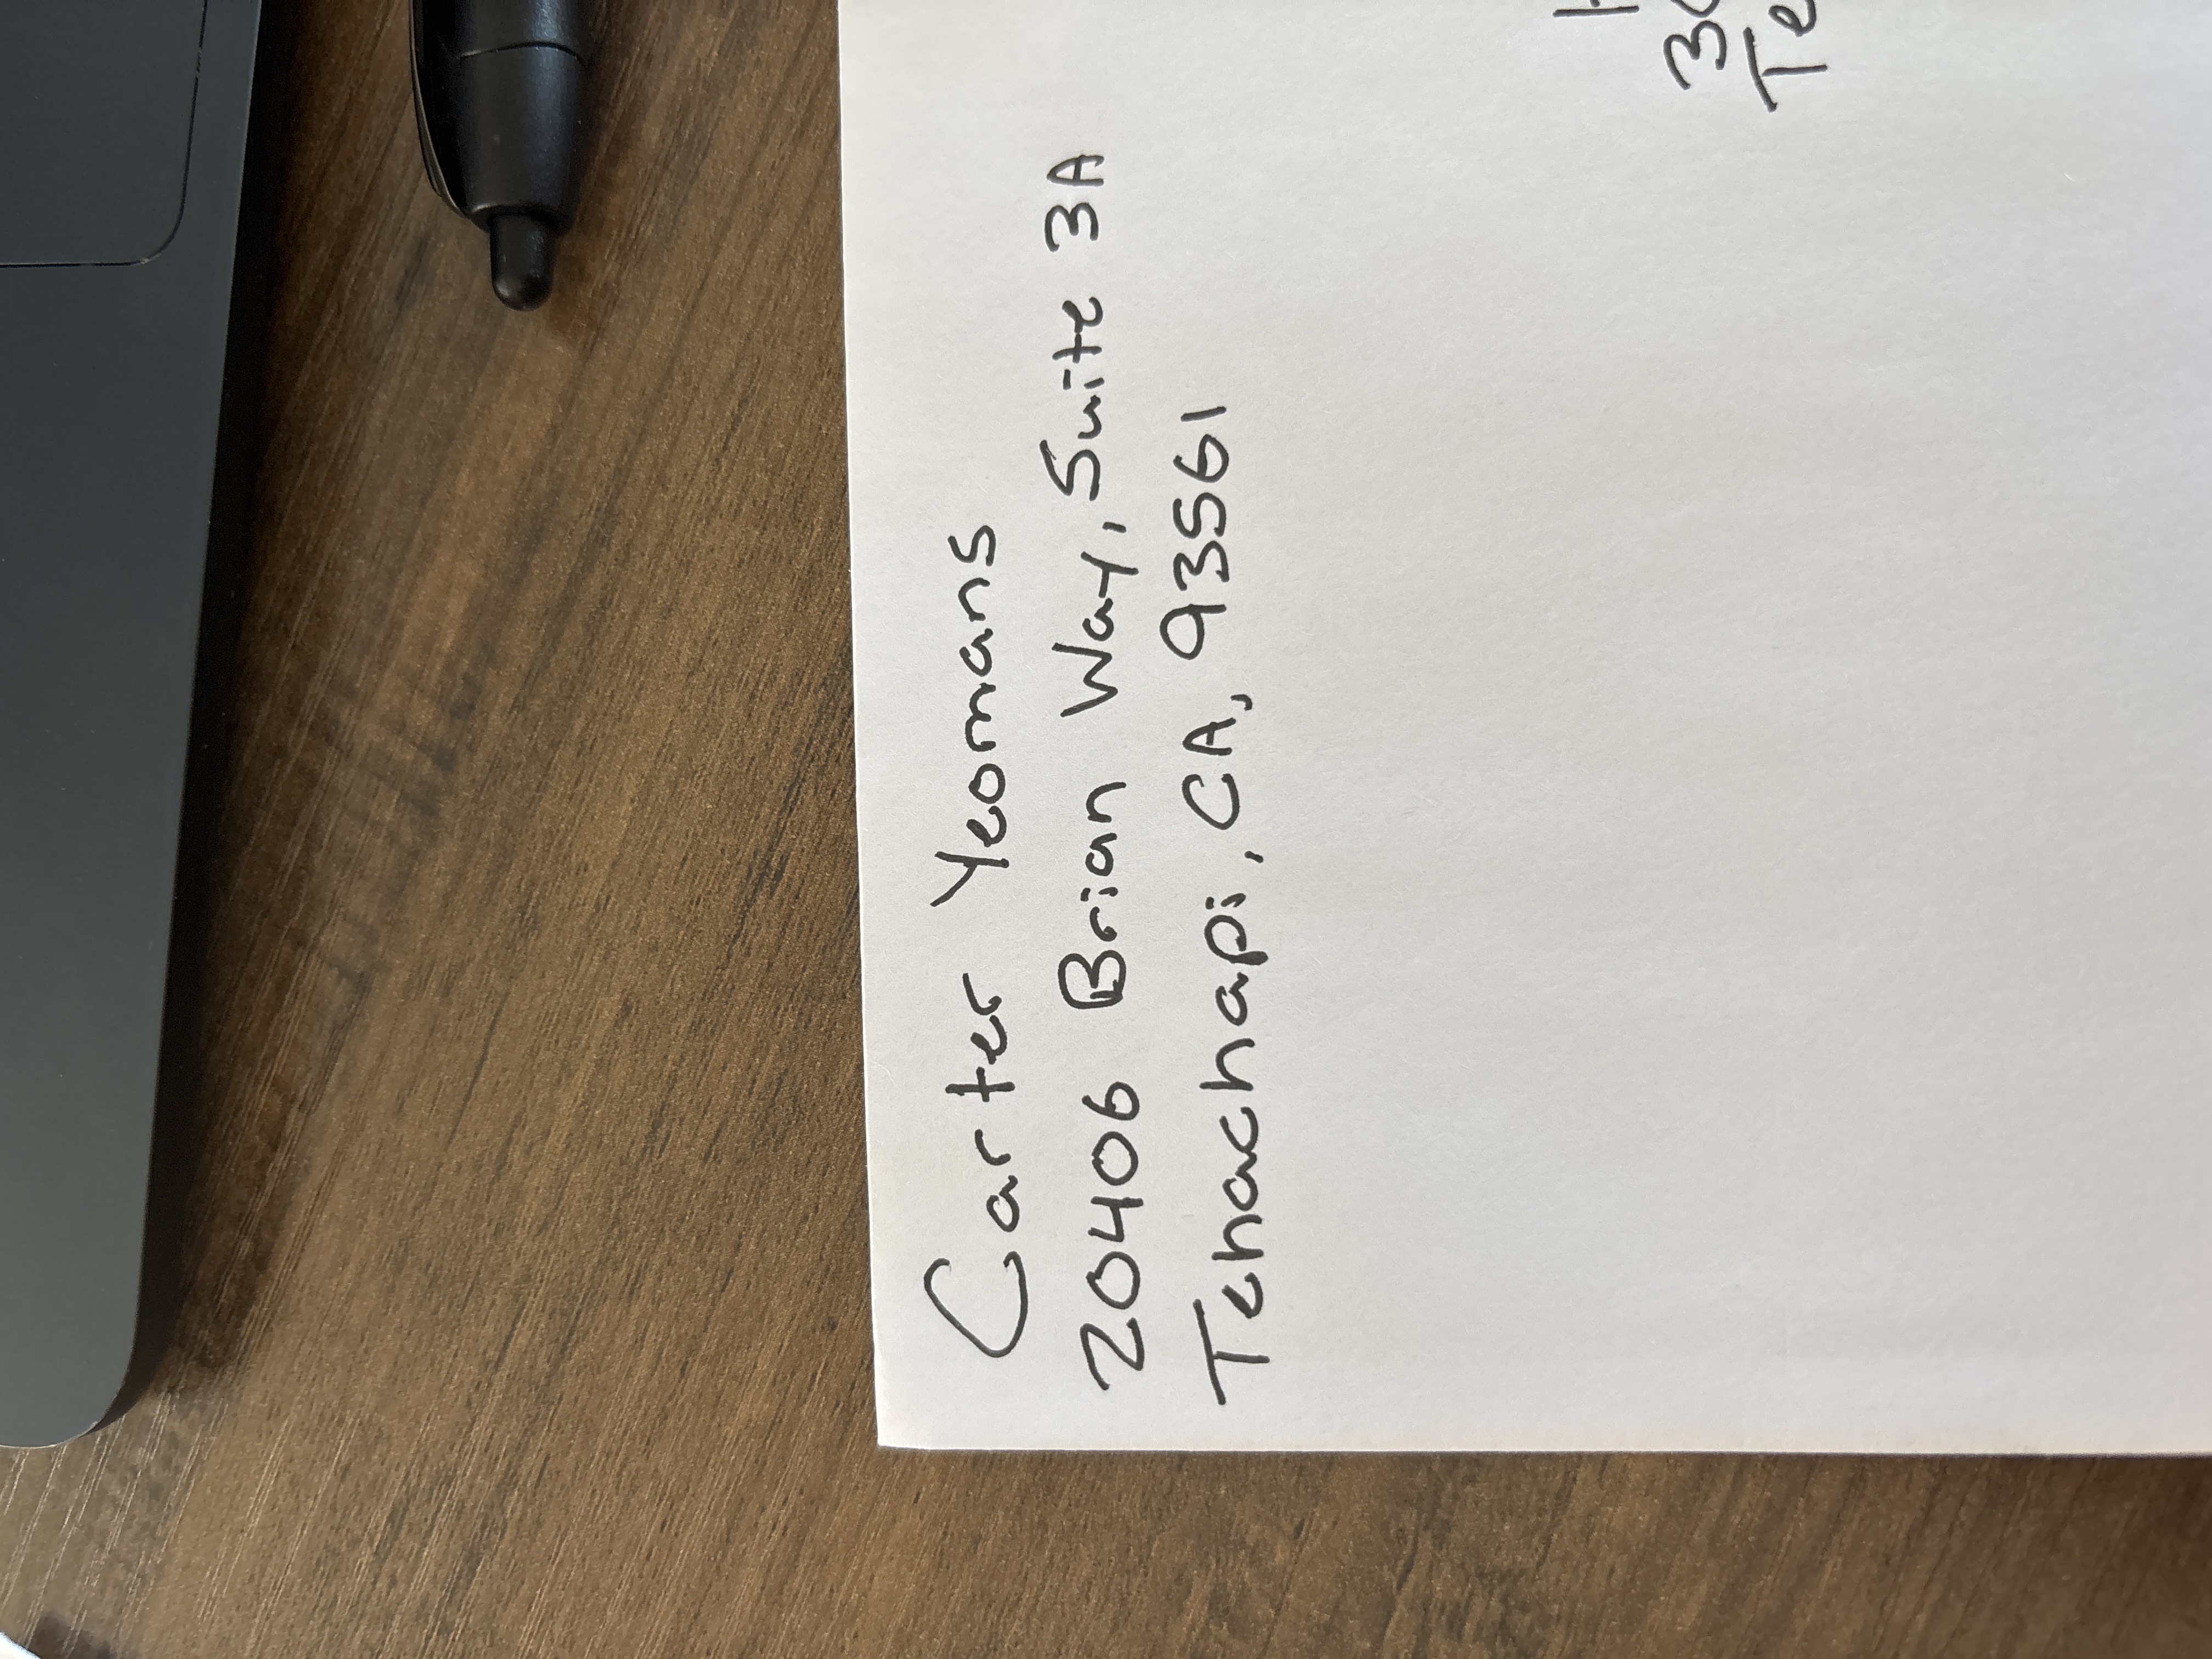 Carter Yeomans
20406 Brian Way, Suite 3A
Tehachapi, CA, 93561